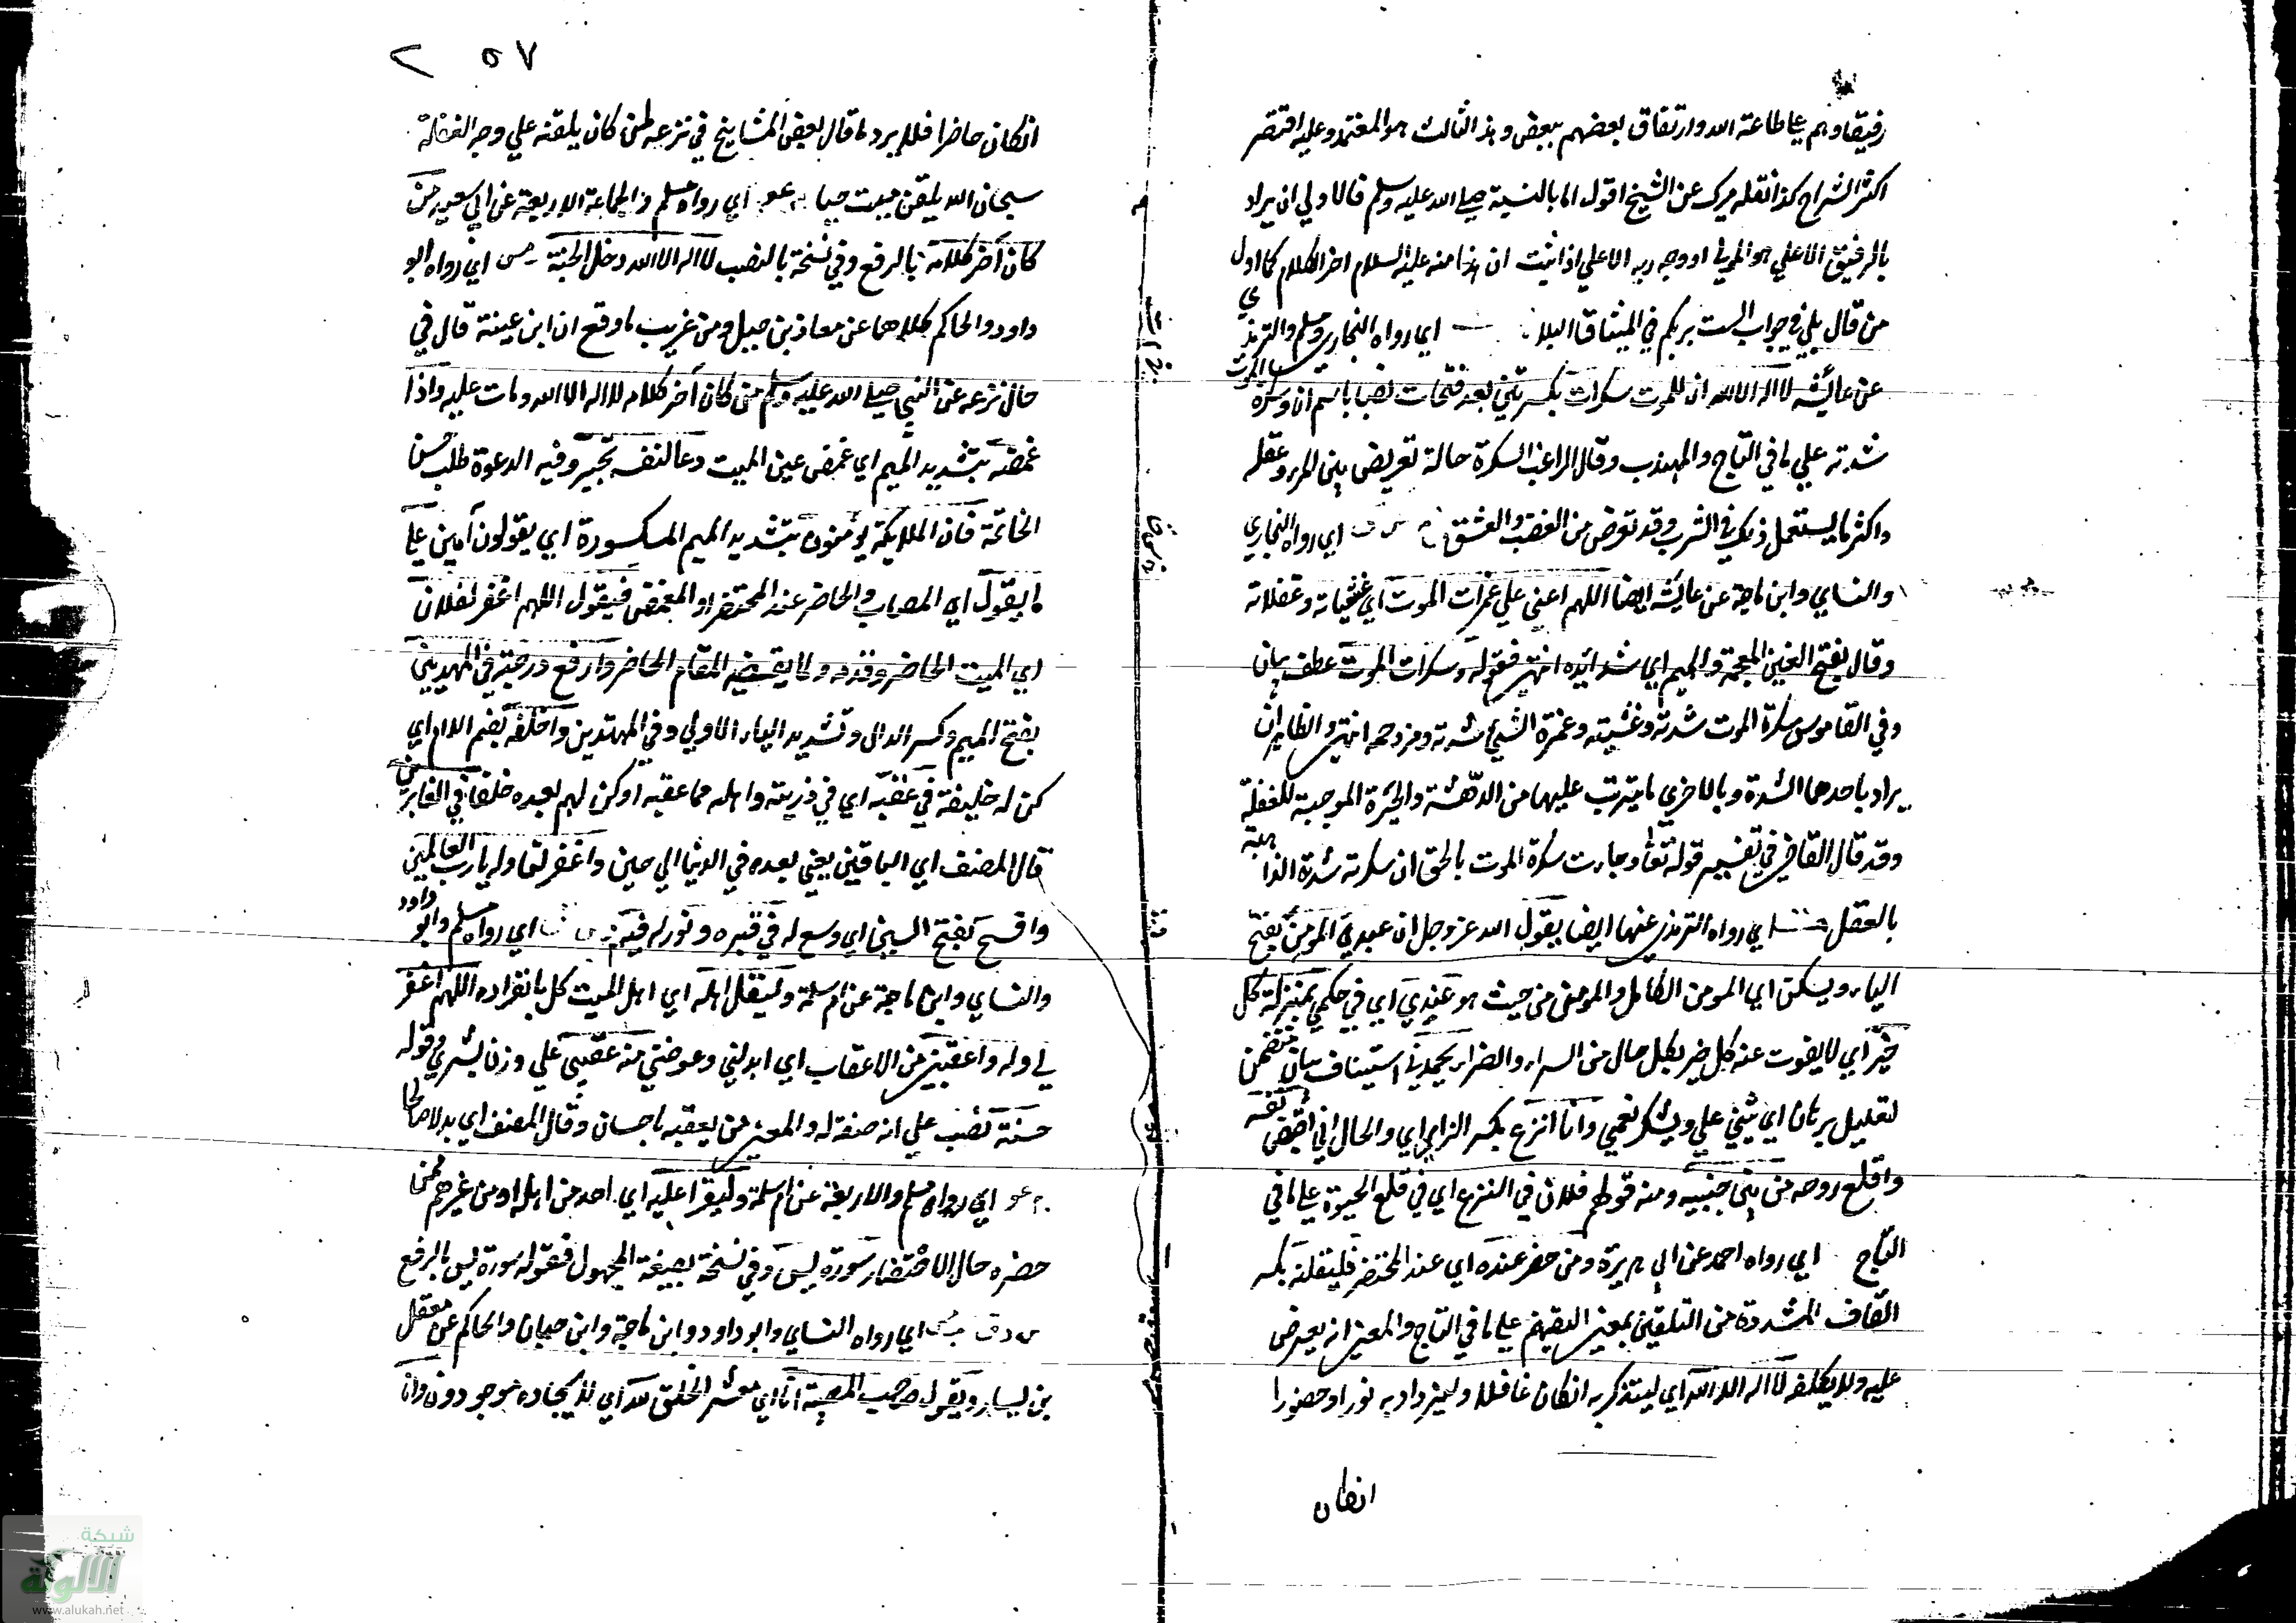 رفيقا وهم علي طاعة الله وارتفاق بعضهم ببعض وهذا الثالث هو المعتمد وعليه اقتصر
اكثر الشراح كذا نقله ميرك عن الشيخ اقول اما بالنسبة صلي الله عليه وسلم فالاولي ان يراد
بالرفيق الاعلي هو المولي او وجه ربه الاعلي اذا ثبت ان هذا منه عليه السلام اخر الكلام كما اول
من قال بلي في جواب الست بربكم في الميثاق اي رواه البخاري ومسلم والترمذي
عن عائشة لا اله الا الله ان للموت سكرات بكسرتين بعد فتحات نصبا باسم ان وسكرة الموت
شدته علي ما في التاج والمهذب وقال الراغب السكرة حالة تعرض بين المرء وعقله
واكثر ما يستعمل ذلك في الشرب وقد تعرض من الغضب والعشق خ س ق اي رواه البخاري
والنساي وابن ماجة عن عائشة ايضا اللهم اعني علي غمرات الموت اي غشيانه وغفلاته
وقال بفتح الغين المعجمة والميم اي شدائده انتهي فقوله وسكرات الموت عطف بيان
وفي القاموس سكرة الموت شدته وغشيته وغمرة الشيئ شدته ومزدحمه انتهي والظاهر ان
يراد باحدهما الشدة وبالاخري ما يترتب عليها من الدهشة والحيرة الموجبة للغفلة
وقد قال القاضي في تفسير قوله تعا وجاءت سكرة الموت بالحق ان سكرته شدة الذاهبة
بالعقل ت اي رواه الترمذي عنها ايضا يقول الله عز وجل ان عبدي المومن بفتح
الياء ويسكن اي المومن الكامل والمومن من حيث هو عندي اي في حكمي بمنزلة كل
خير اي لا يفوت عنه كل خير بكل حال من السراء والضراء يحمدني استيناف بيان متضمن
لتعليل برهان اي يثني علي ويشكر نعمي وانا انزع بكسر الزاي اي والحال اني اقبض نفسه
واقلع روحه من بين جنبيه ومنه قولهم فلان في النزع اي في قلع الحيوة علي ما في
التاج اي رواه احمد عن ابي هريرة ومن حضر عنده اي عند المحتضر فليلقنه بكسر
القاف المشددة من التلقين بمعني التفهيم علي ما في التاج والمعني انه يعرض
عليه ولا يكلفه لا اله الا الله اي ليتذكر به ان كان غافلا وليزداد به نورا وحضورا
انكان
٢ ٥٧
انكان حاضرا فلا يرد ما قال بعض المشايخ في نزعه لمن كان يلقنه علي وجه الغفلة
سبحان الله يلقن ميت حيا م عو اي رواه مسلم والجماعة الاربعة عن ابي سعيد من
كان آخر كلامه بالرفع وفي نسخة بالنصب لا اله الا الله دخل الجنة د مس اي رواه ابو
داود والحاكم كلاهما عن معاذ بن جبل ومن غريب ما وقع ان ابن عيينة قال في
حال نزعه عن النبي صلي الله عليه وسلم من كان آخر كلامه لا اله الا الله ومات عليه واذا
غمضه بتشديد الميم اي غمض عين الميت دعا لنفسه بخير وفيه الدعوة طلب حسن
الخاتمة فان الملايكة يؤمنون بتشديد الميم المكسورة اي يقولون آمين علي
ما يقول اي المصاب والحاضر عند المحتضر او المغمض فيقول اللهم اغفر لفلان
اي الميت الحاضر المقام الحاضر وارفع درجته في المهديين
بفتح الميم وكسر الدال وتشديد الياء الاولي وفي المهتدين واخلفه بضم اللام اي
كن له خليفة في عقبه اي في ذريته واهله مما عقبه او كن لهم بعده خلفا في الغابرين
قال المصنف اي الباقين يعني بعده في الدنيا الي حين واغفر لنا وله يا رب العالمين
وافسح بفتح السين اي وسع له في قبره ونور له فيه م د س ق اي رواه مسلم وابو داود
والنساي وابن ماجة عن ام سلمة وليقل اهله اي اهل الميت كل بانفراده اللهم اغفر
لي وله واعقبني من الاعقاب اي ابدلني وعوضني منه عقبي علي وزن بشري وقوله
حسنة نصب علي انه صفة له والمعني من يعقبه باحسان وقال المصنف اي بدلا صالحا
م عو اي رواه مسلم والاربعة عن ام سلمة وليقرا عليه اي احد من اهله او من غيرهم ممن
حضره حال الاحتضار سورة يس وفي نسخة بصيغة المجهول فقوله سورة يس بالرفع
س د ق حب مس اي رواه النساي وابو داود وابن ماجة وابن حبان والحاكم عن معقل
بن يسار ويقول صاحب المصيبة انا اي معشر الخلق لله اي لايجاده موجودون وانا
شبكة
الألوكة
www.alukah.net